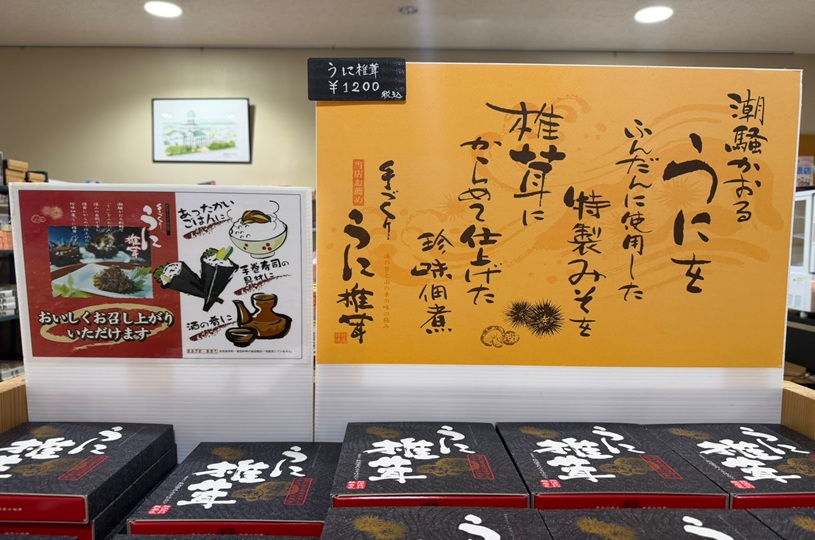 うに椎茸
￥1200
税込
潮騒かおる
うにを
ふんだんに使用した
特製みそを
椎茸に
からめて仕上げた
珍味佃煮
当店お薦め
手づくり
うに椎茸
手づくり
うに
椎茸
おいしくお召し上がり
いただけます
あったかい
ごはんに
手巻寿司の
具材に
酒の肴に
うに
椎茸
うに
椎茸
うに
椎茸
うに
椎茸
うに
椎茸